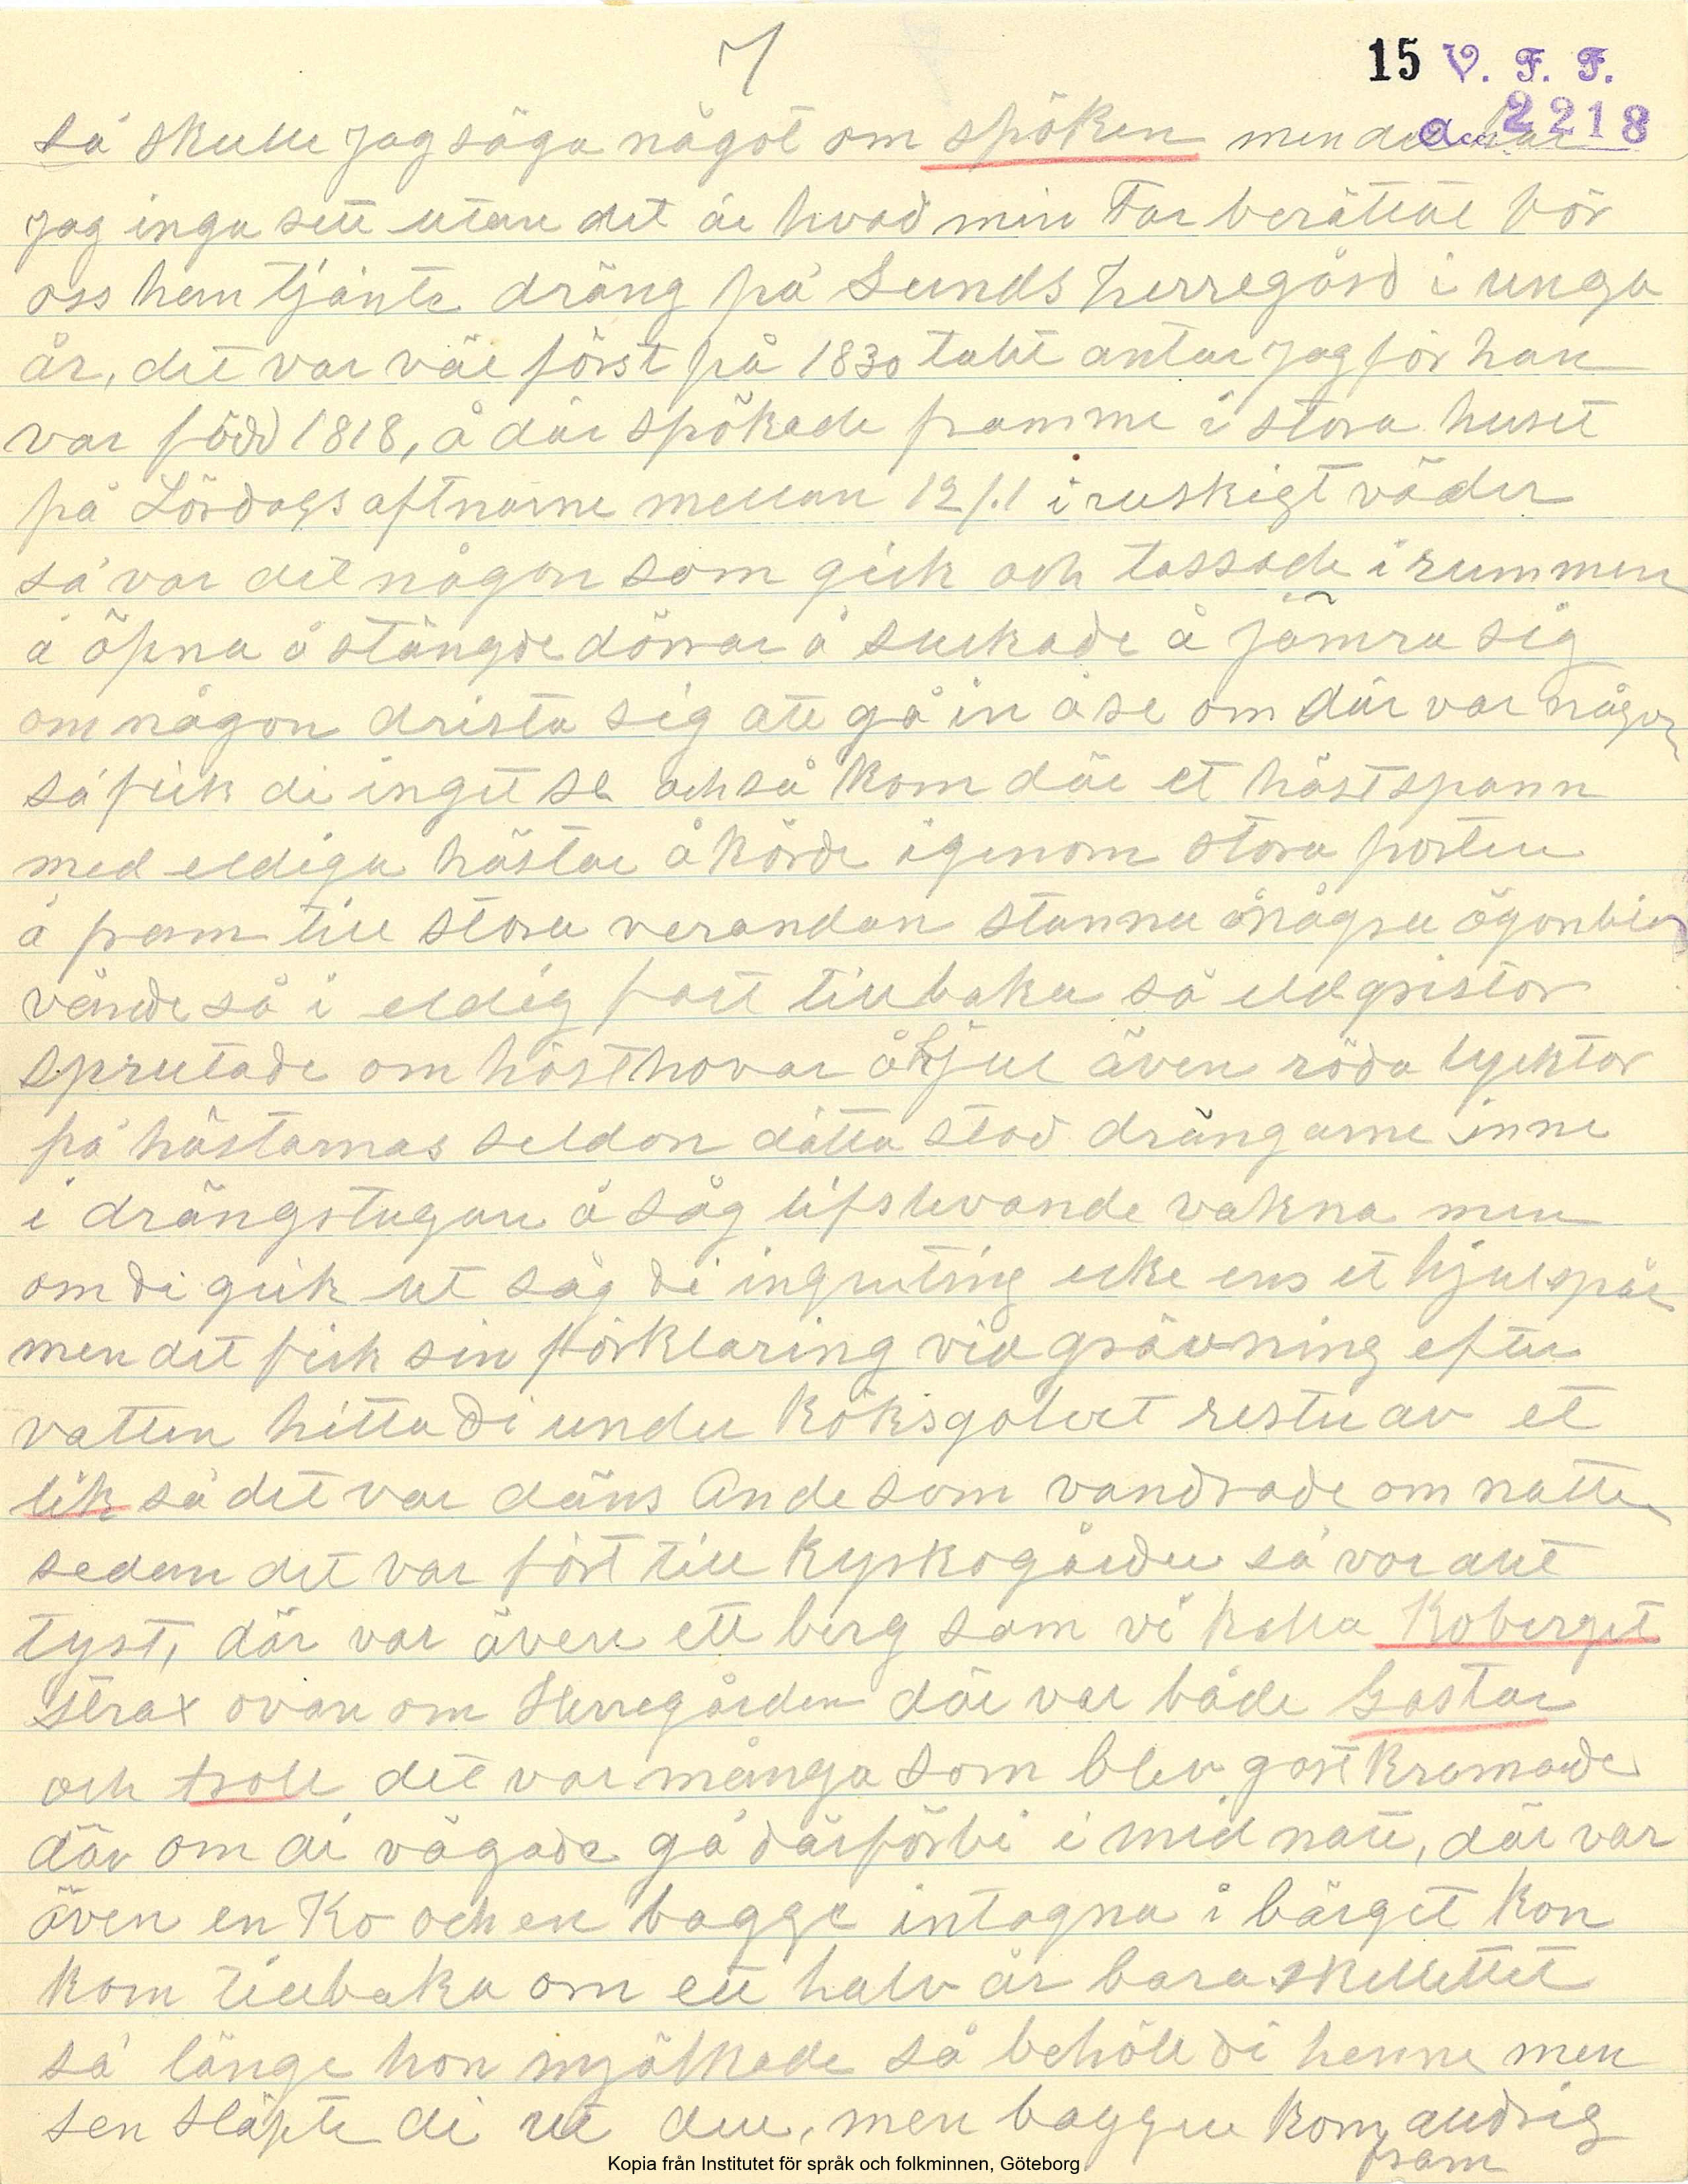 7
15 V. F. F.
2218
Så skulle jag säga något om spöken men det har
jag inga sett utan det är hvad min Far berättat för
oss han tjänte dräng på Lunds Herregård i unga
år, det var väl först på 1830 talet antar jag för han
var född 1818, å där spökade framme i stora huset
på Lördags aftnarne mellan 12/.1 i ruskigt väder
så var det någon som gick och tassade i rummen
å öpna å stängde dörrar å suckade å jämra sig
om någon drista sig att gå in å se om där var någon
så fick di inget se och så kom där et hästspann
med eldiga hästar å körde igenom stora porten
å fram till stora verandan stanna några ögonblick
vände så i eldig fart tillbaka så eldgnistor
sprutade om hästhovar å hjul även röda lycktor
på hästarnas seldon detta stod drängarne inne
i drängstugan å såg lifslevande vakna men
om di gick ut såg di ingenting icke ens et hjulspår
men det fick sin förklaring vid grävning efter
vatten hitta di under köksgolvet rester av et
lik så det var däns Ande som vandrade om natten
sedan det var fört till kyrkogården så var allt
tyst, där var även ett berg som vi kalla Koberget
strax ovan om Herregården där var både Gastar
och troll det var många som blev gastkramade
där om di vågade gå därförbi i mid natt, där var
även en Ko och en bagge intagna i bärget kon
kom tillbaka om ett halv år bara skellettet
så länge hon mjölkade så behöll di henne men
sen släpte di ut den, men baggen kom alldrig
fram
Kopia från Institutet för språk och folkminnen, Göteborg